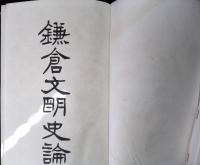 鎌倉文明史論